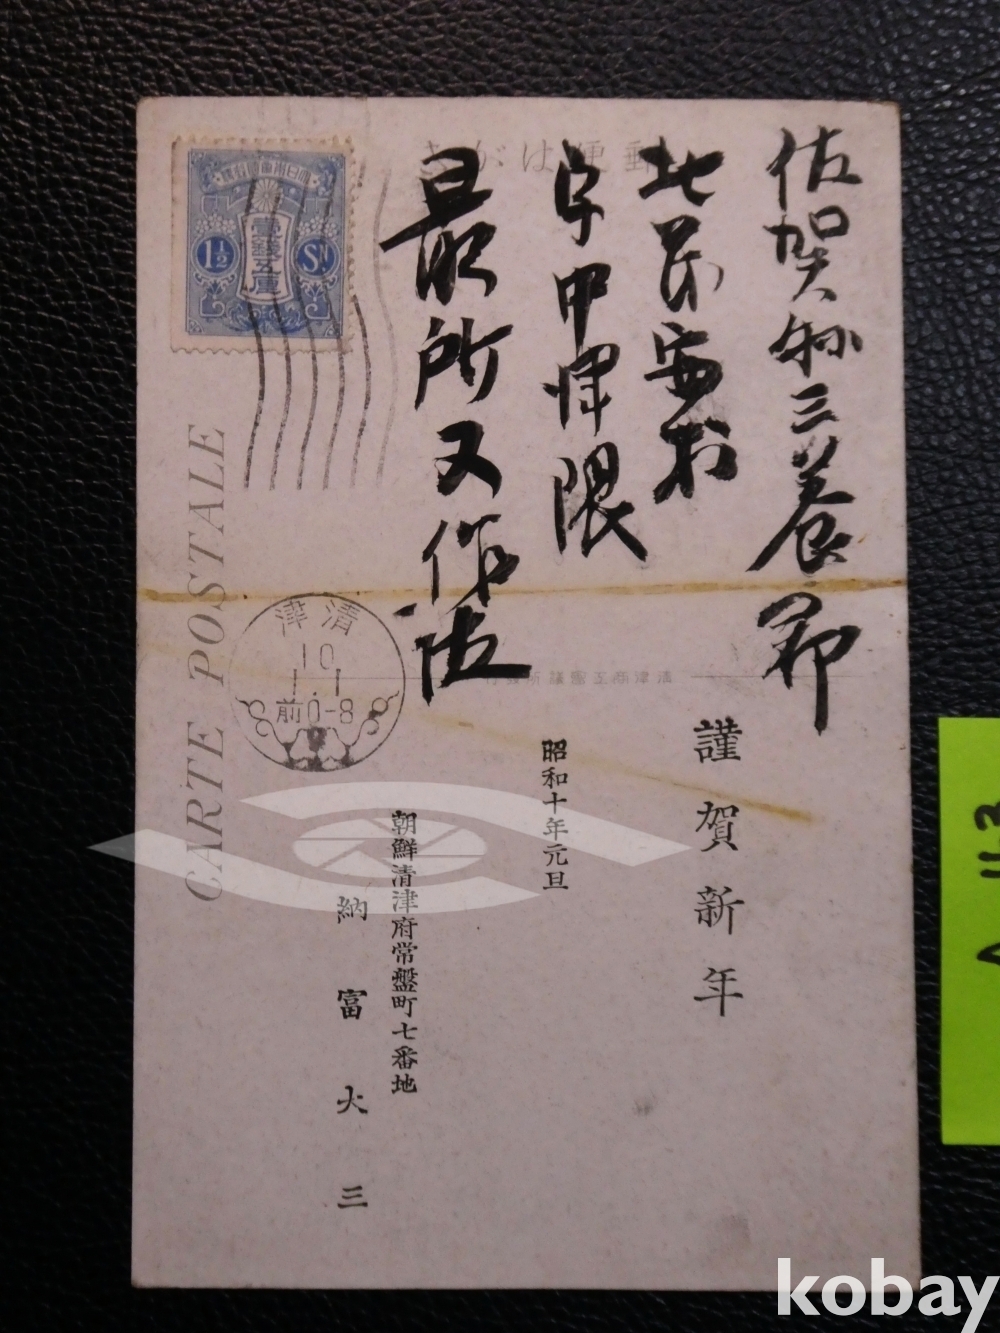 郵便はがき
佐賀縣三養基郡
北茂安村
字中津隈
最所又作様
大日本帝國郵便
壹銭五厘
1½ Sn
CARTE POSTALE
清津
10
1.1
前0-8
清津商工會議所發行
謹賀新年
昭和十年元旦
朝鮮清津府常盤町七番地
納富大三
kobay